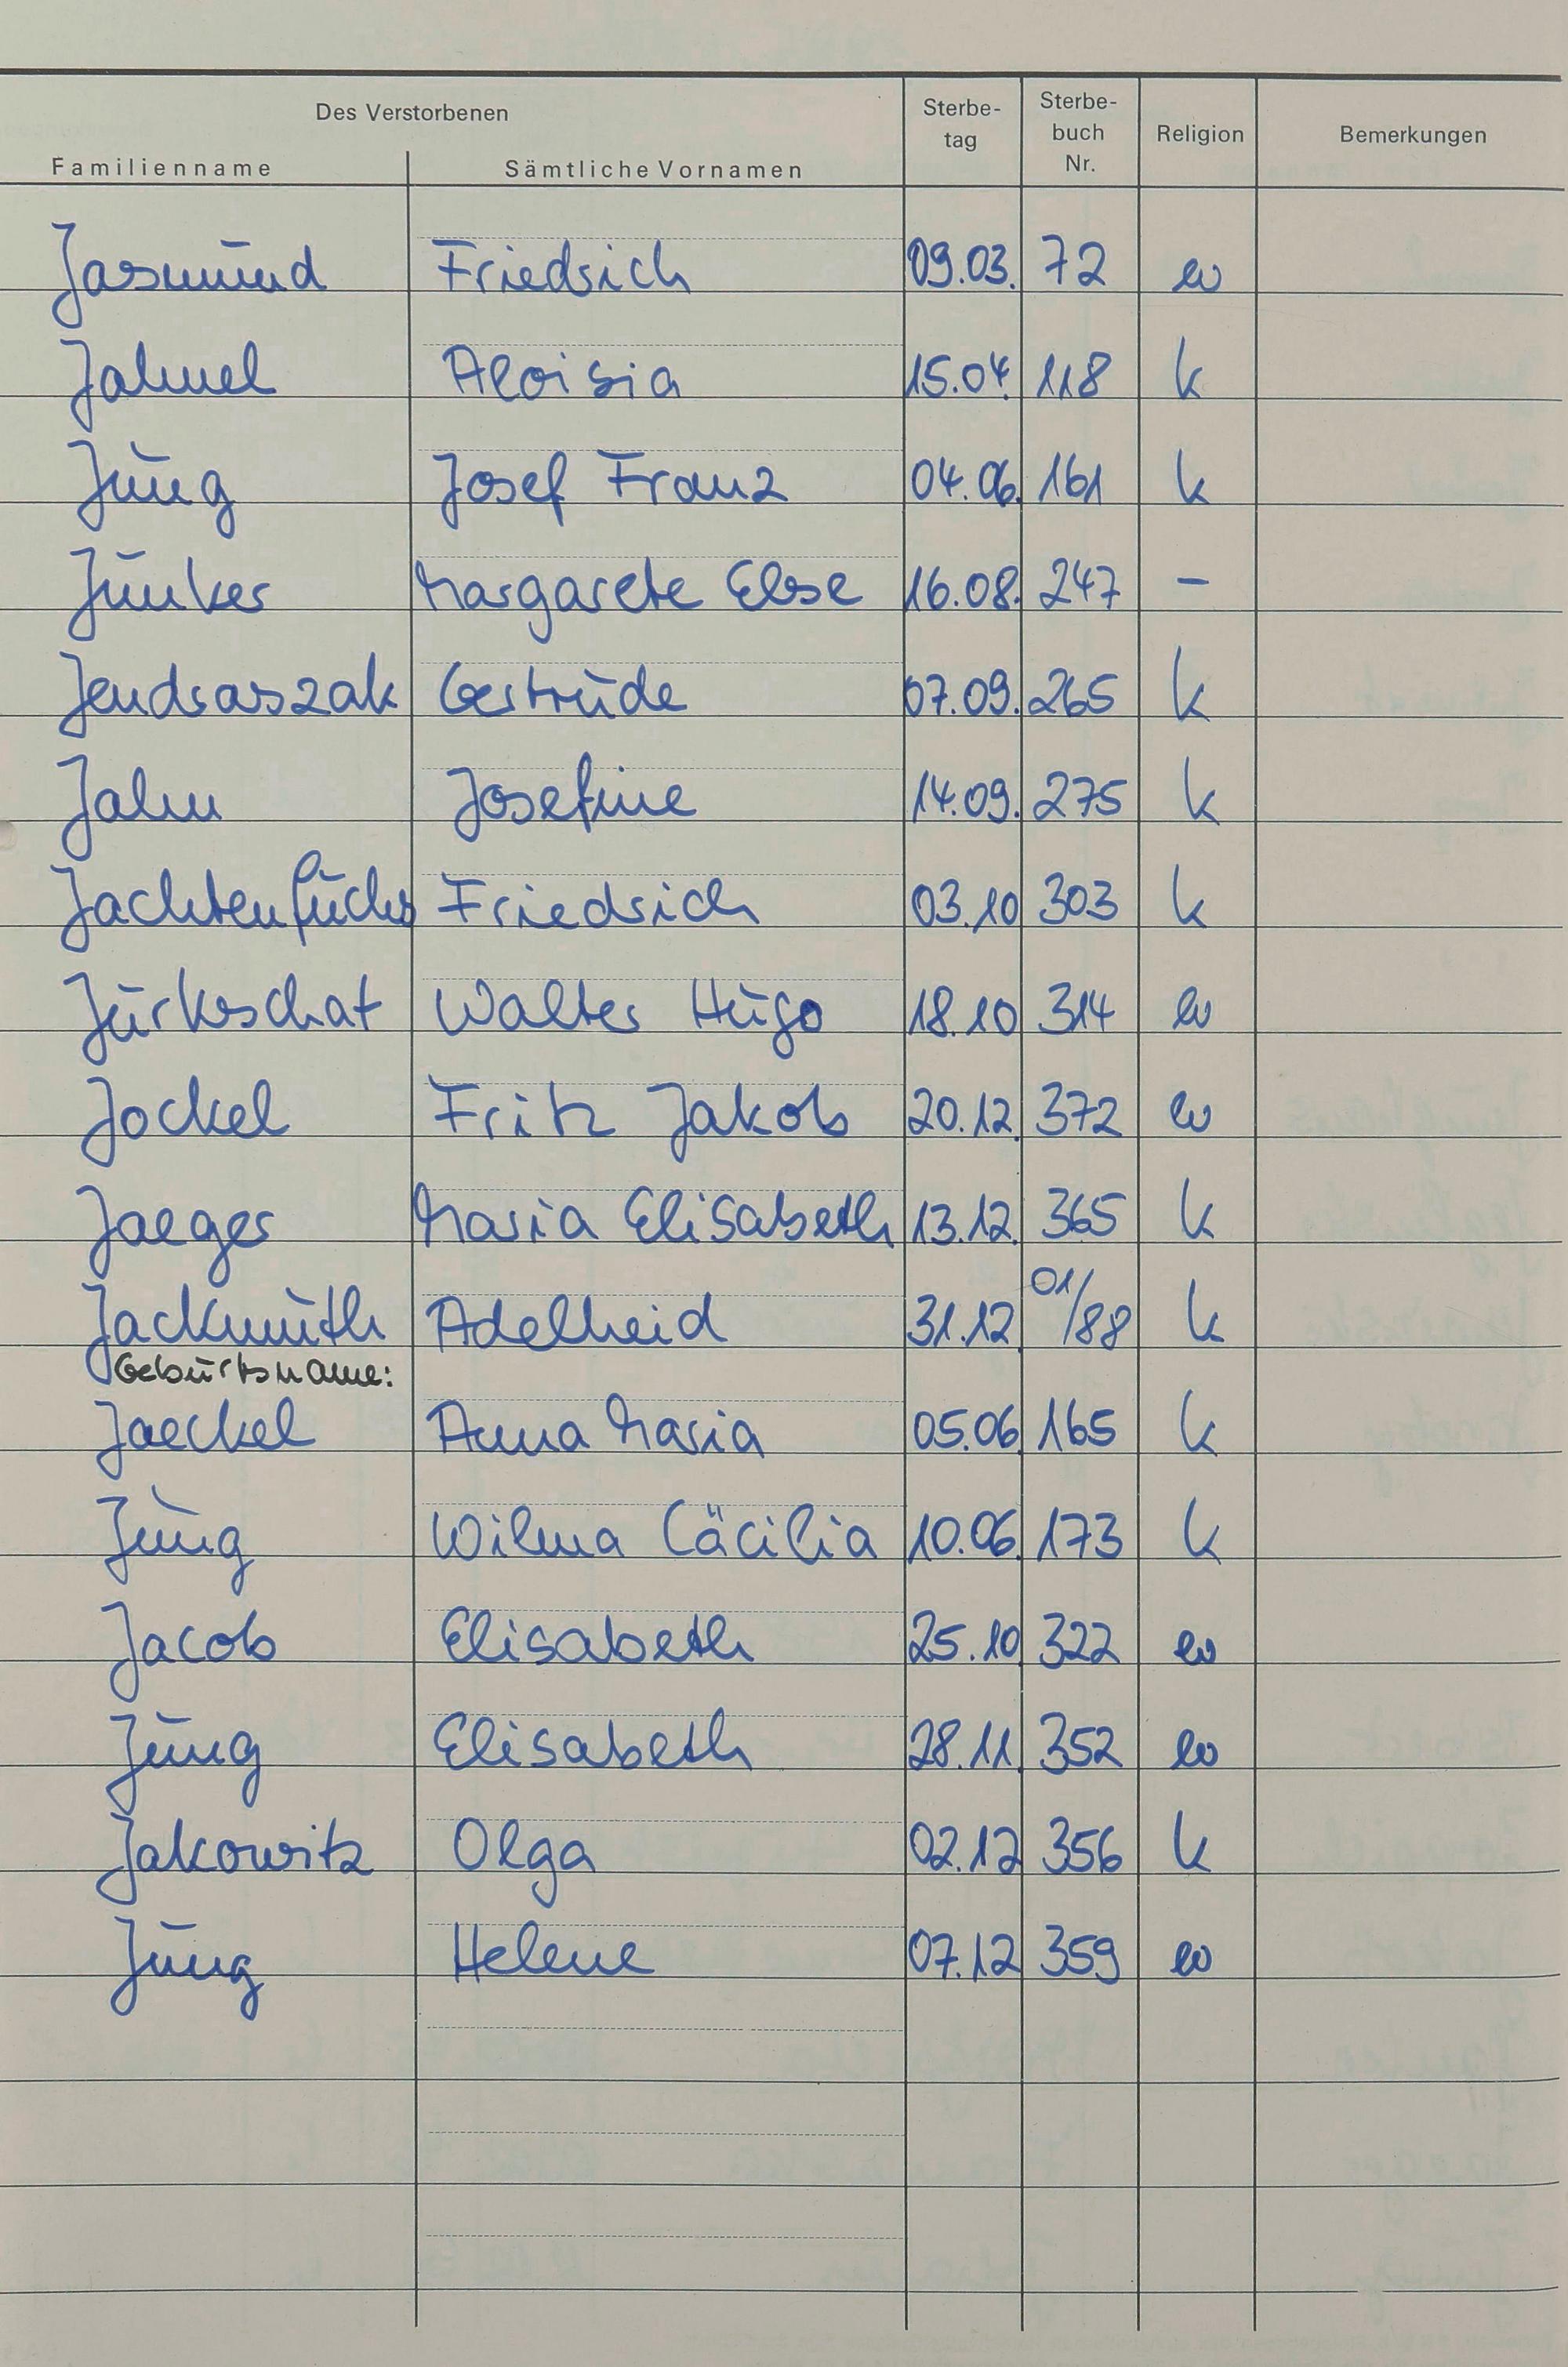 Des Verstorbenen
Familienname Sämtliche Vornamen Sterbe-tag Sterbe-buch Nr. Religion Bemerkungen
Jasmund Friedrich 09.03. 72 ev
Jahnel Aloisia 15.04. 118 k
Jung Josef Franz 04.06. 161 k
Junker Margarete Else 16.08. 247 –
Jendraszak Gertrude 07.09. 265 k
Jahn Josefine 14.09. 275 k
Jachtenfuchs Friedrich 03.10 303 k
Jurkschat Walter Hugo 18.10 314 ev
Jockel Fritz Jakob 20.12. 372 ev
Jaeger Maria Elisabeth 13.12. 365 k
Jackmuth Adelheid 31.12 01/88 k
Geburtsname:
Jaeckel Anna Maria 05.06 165 k
Jung Wilma Cäcilia 10.06. 173 k
Jacob Elisabeth 25.10 322 ev
Jung Elisabeth 28.11. 352 ev
Jakowitz Olga 02.12 356 k
Jung Helene 07.12 359 ev